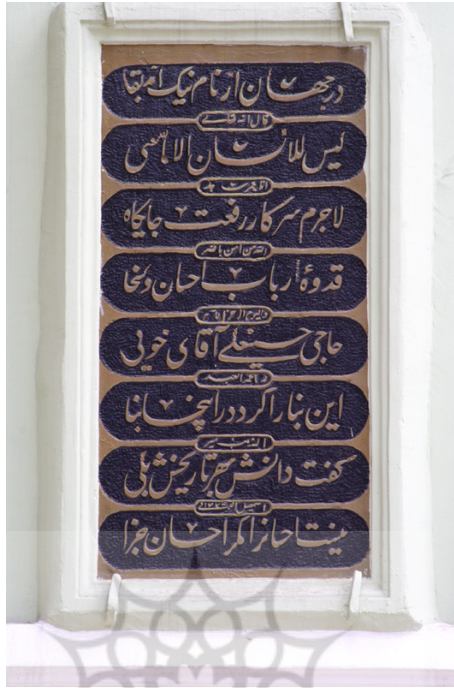 در جهان از نام نیک آمد بقا
قال الله تعالی
لیس للانسان الا ما سعی
لاجرم سرکار رفعت جایگاه
قدوهٔ ارباب احسان و سخا
حاجی حسینعلی آقای خوئی
این بنا را کرد در اینجا بنا
گفت دانش بهر تاریخش بلی
نیست احسانرا مگر احسان جزا